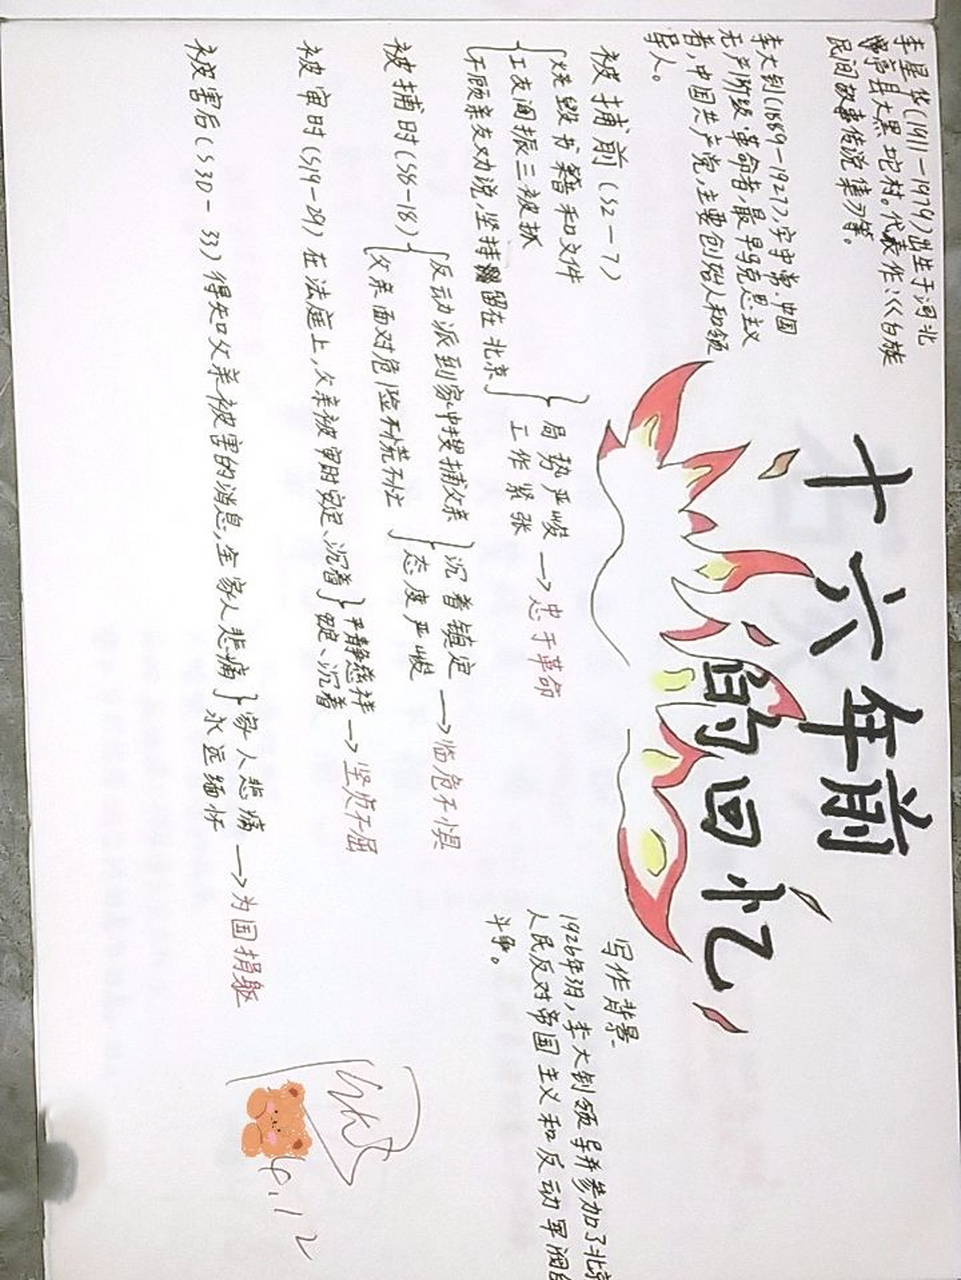 李星华(1911-1979)出生于河北
乐亭县大黑坨村。代表作:《白族
民间故事传说集》等。
十六年前
的回忆
李大钊(1889-1927),字守常,中国
无产阶级革命者,最早马克思主义
者,中国共产党,主要创始人和领
导人。
写作背景
1926年3月,李大钊领导并参加了北京
人民反对帝国主义和反动军阀的
斗争。
被捕前(S2-7)
烧毁书籍和文件
工友阎振三被抓
不顾亲友劝说,坚持留在北京
局势严峻
工作紧张
→忠于革命
被捕时(S8-18)
反动派到家中搜捕父亲
父亲面对危险不慌不忙
沉着镇定
态度严峻
→临危不惧
被审时(S19-29)在法庭上,父亲被审时安定、沉着
平静慈祥
安定、沉着
→坚贞不屈
被害后(S30-33)得知父亲被害的消息,全家人悲痛
家人悲痛
永远缅怀
→为国捐躯
4.12